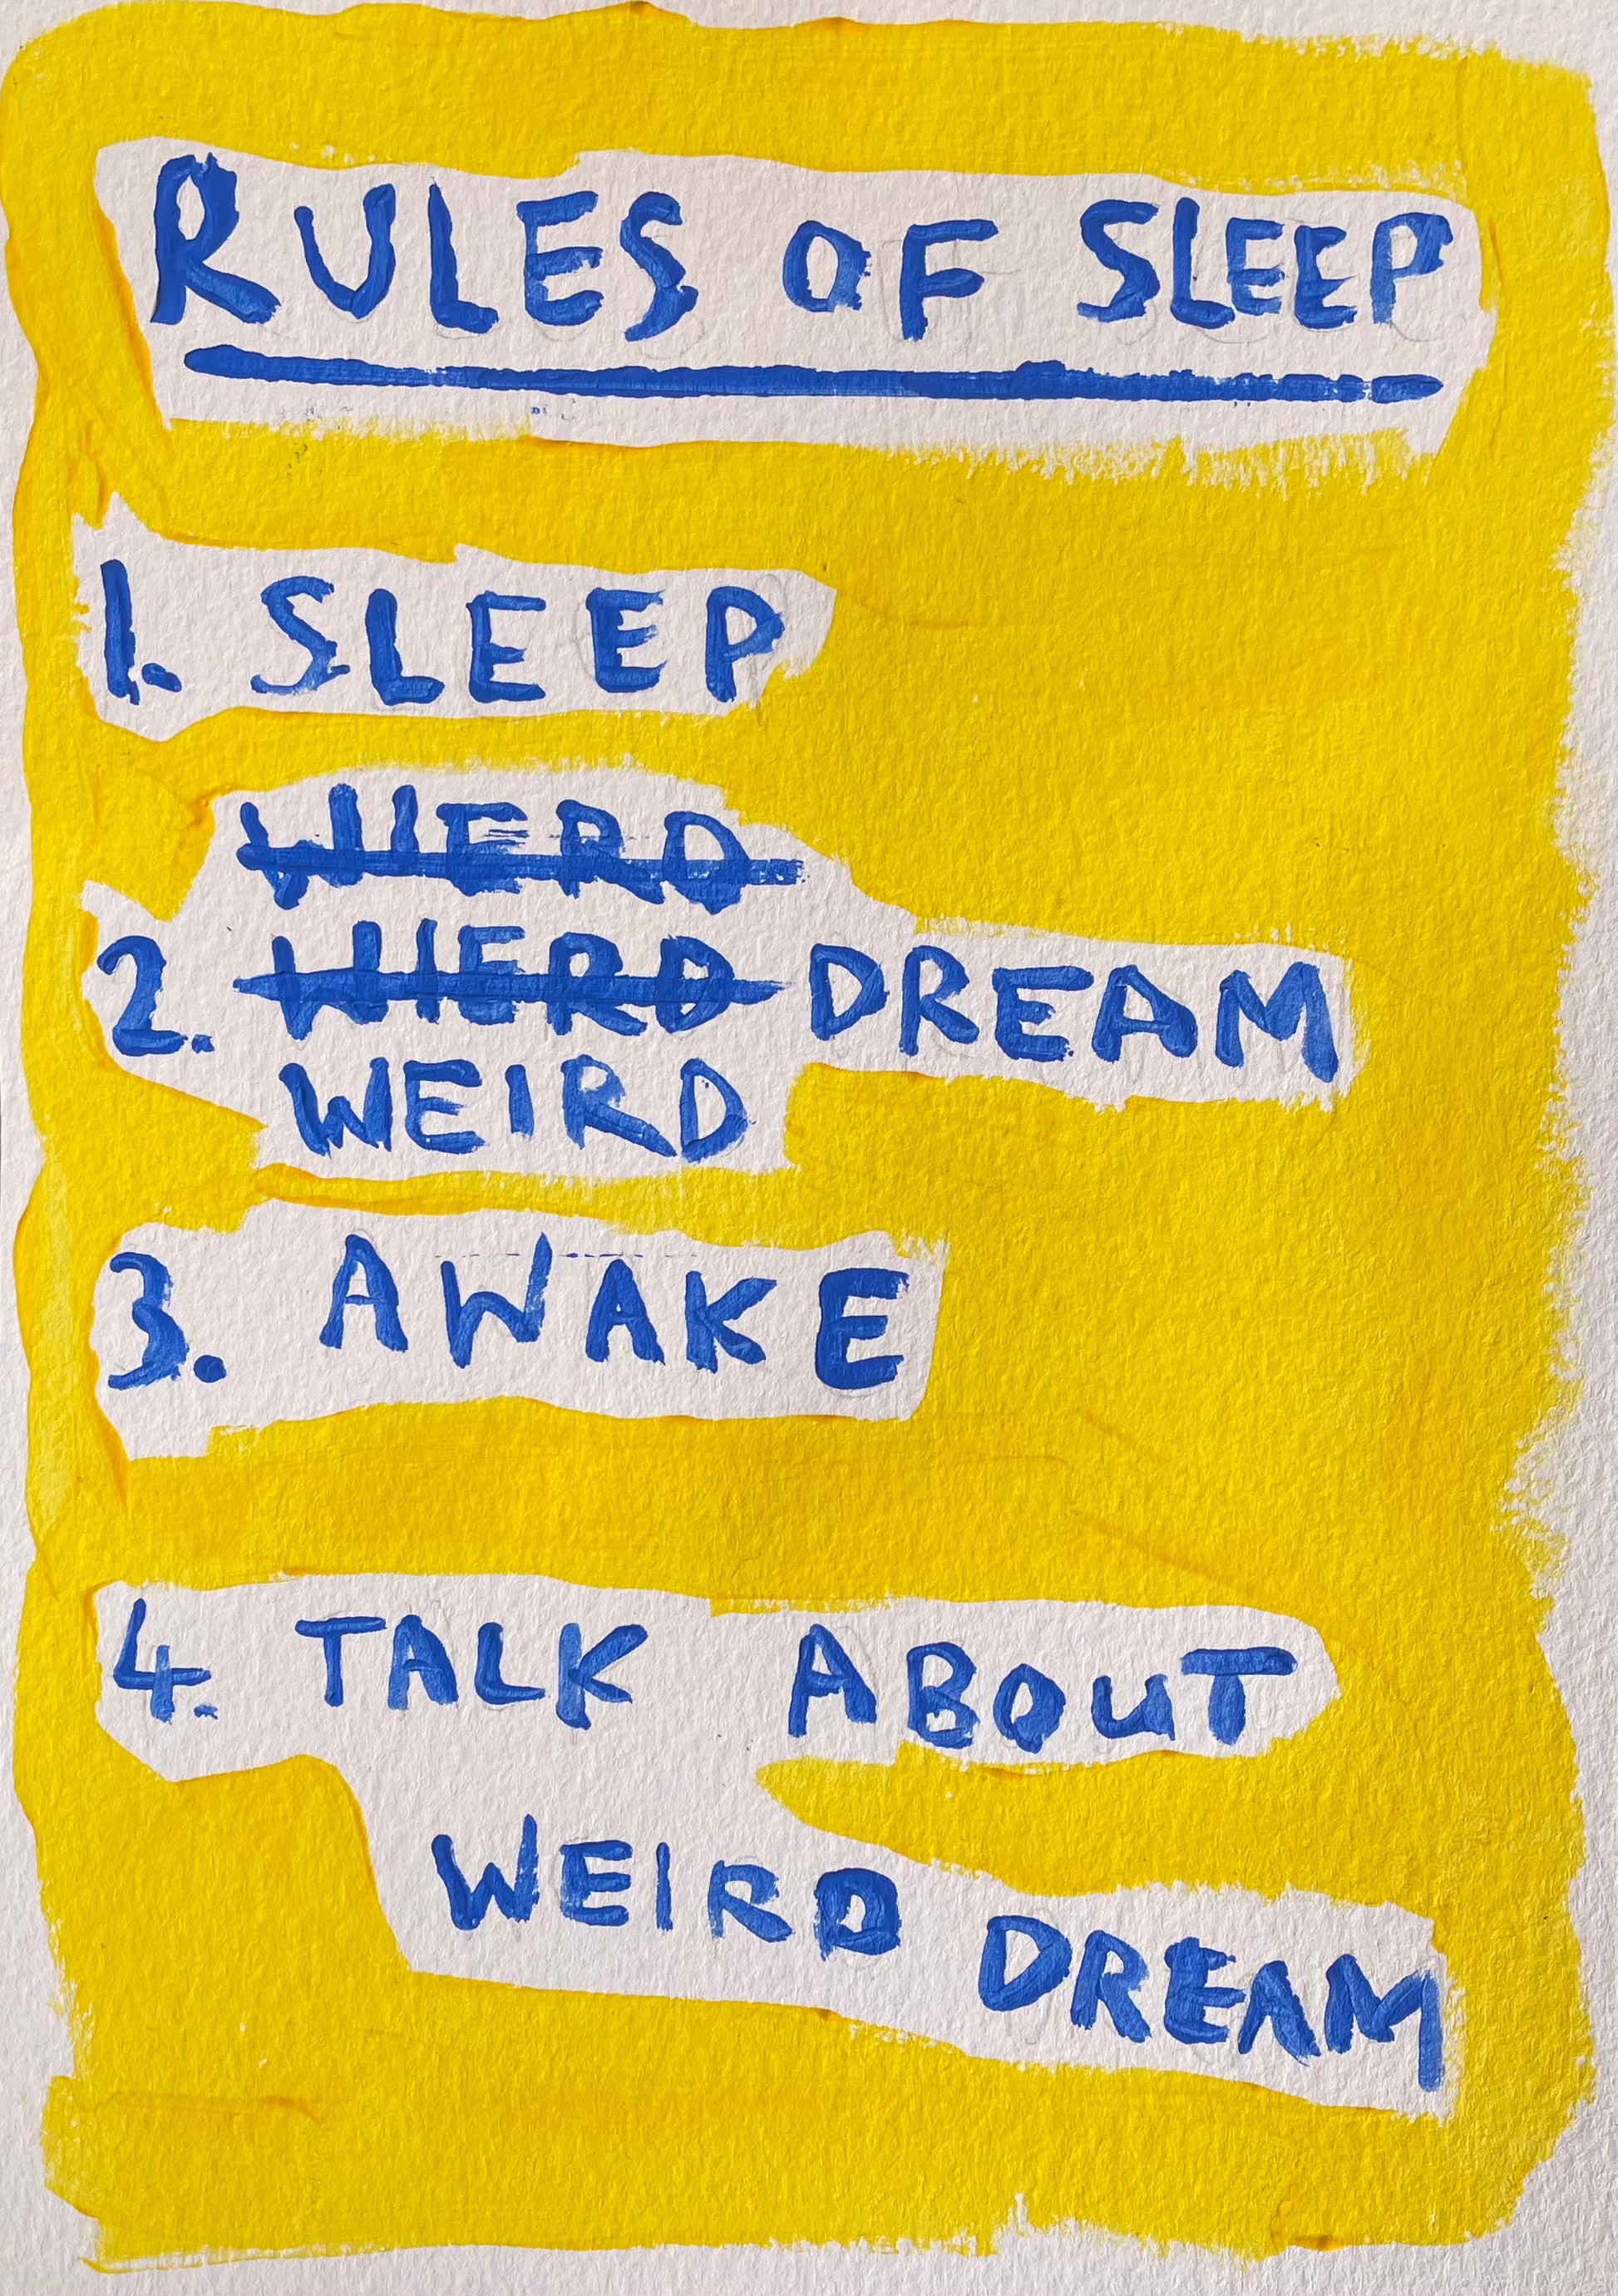 RULES OF SLEEP
1. SLEEP
WIERD
2. WIERD DREAM
WEIRD
3. AWAKE
4. TALK ABOUT
WEIRD DREAM